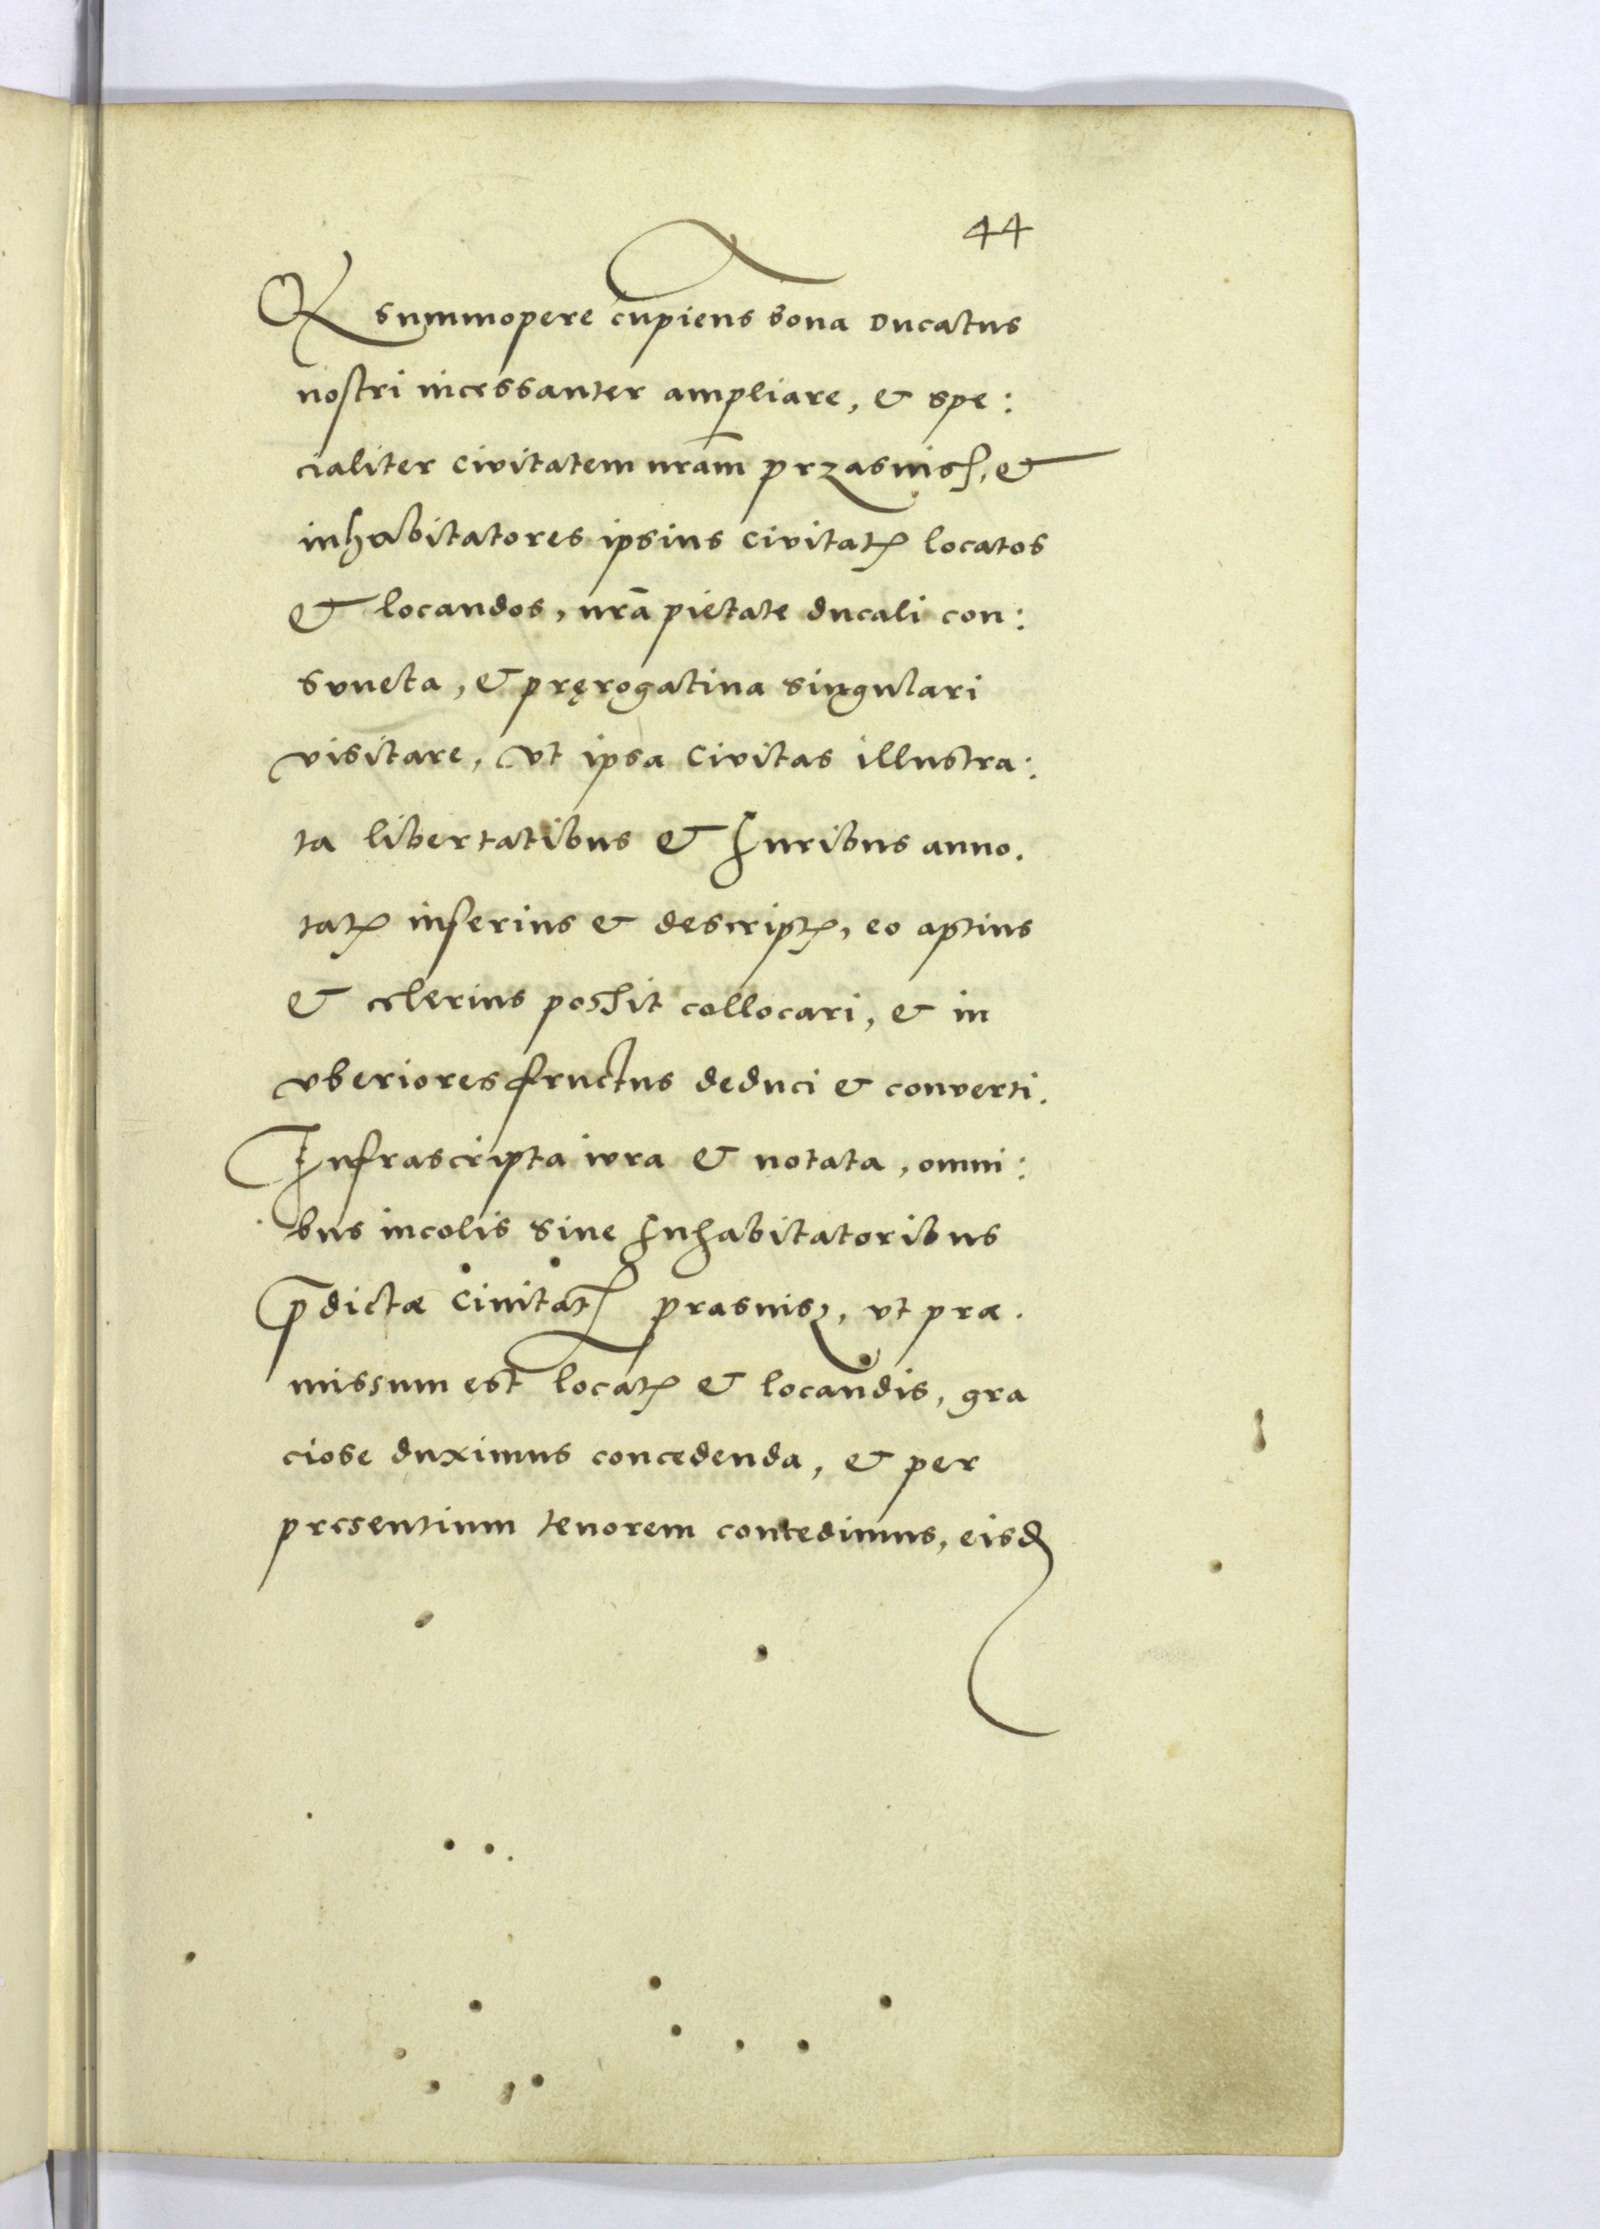 44
& summopere cupiens bona Ducatus
nostri incessanter ampliare, & spe:
cialiter civitatem nr̄am przasnish, &
inhabitatores ipsius civitatꝭ locatos
& locandos, nr̄a pietate ducali con:
sveta, & pręrogatiua singulari
visitare, vt ipsa civitas illustra:
ta libertatibus & Iuribus anno.
tatꝭ inferius & descriptꝭ, eo aptius
& celerius possit collocari, & in
vberiores fructus deduci & converti.
Infrascripta ivra & notata, omni:
bus incolis siue Inhabitatoribus
p̄dictæ Ciuitatꝭ prasnisz, vt præ.
missum est locatꝭ & locandis, gra
ciose duximus concedenda, & per
presentium tenorem concedimus, eisd